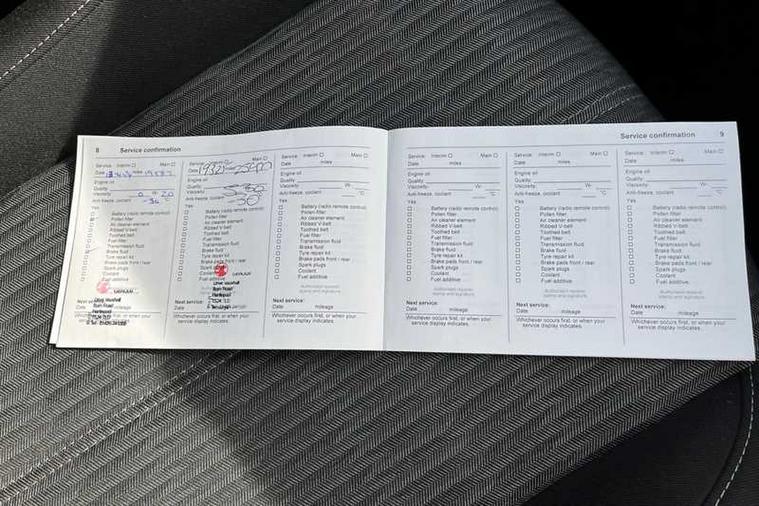 8 Service confirmation
Service: Interim Main
Date
Engine oil
Quality:
Viscosity: 0 20
Anti-freeze, coolant -36 °C
Yes
Battery (radio remote control)
Pollen filter
Air cleaner element
Ribbed V-belt
Toothed belt
Fuel filter
Transmission fluid
Brake fluid
Tyre repair kit
Brake pads front / rear
Spark plugs
Coolant
Fuel additive
Next service:
Whichever occurs first, or when your
service display indicates.
Service: Interim Main
Date
Engine oil
Quality:
Viscosity:
Anti-freeze, coolant
Yes
Battery (radio remote control)
Pollen filter
Air cleaner element
Ribbed V-belt
Toothed belt
Fuel filter
Transmission fluid
Brake fluid
Tyre repair kit
Brake pads front / rear
Spark plugs
Next service:
Date
Whichever occurs first, or when your
service display indicates.
Service: Interim Main
Date miles
Engine oil
Quality:
Viscosity: W-
Anti-freeze, coolant °C
Yes
Battery (radio remote control)
Pollen filter
Air cleaner element
Ribbed V-belt
Toothed belt
Fuel filter
Transmission fluid
Brake fluid
Tyre repair kit
Brake pads front / rear
Spark plugs
Coolant
Fuel additive
Authorised repairer
stamp and signature
Next service:
Date mileage
Whichever occurs first, or when your
service display indicates.
Service confirmation 9
Service: Interim Main
Date miles
Engine oil
Quality:
Viscosity: W-
Anti-freeze, coolant °C
Yes
Battery (radio remote control)
Pollen filter
Air cleaner element
Ribbed V-belt
Toothed belt
Fuel filter
Transmission fluid
Brake fluid
Tyre repair kit
Brake pads front / rear
Spark plugs
Coolant
Fuel additive
Authorised repairer
stamp and signature
Next service:
Date mileage
Whichever occurs first, or when your
service display indicates.
Service: Interim Main
Date miles
Engine oil
Quality:
Viscosity: W-
Anti-freeze, coolant °C
Yes
Battery (radio remote control)
Pollen filter
Air cleaner element
Ribbed V-belt
Toothed belt
Fuel filter
Transmission fluid
Brake fluid
Tyre repair kit
Brake pads front / rear
Spark plugs
Coolant
Fuel additive
Authorised repairer
stamp and signature
Next service:
Date mileage
Whichever occurs first, or when your
service display indicates.
Service: Interim Main
Date miles
Engine oil
Quality:
Viscosity: W-
Anti-freeze, coolant °C
Yes
Battery (radio remote control)
Pollen filter
Air cleaner element
Ribbed V-belt
Toothed belt
Fuel filter
Transmission fluid
Brake fluid
Tyre repair kit
Brake pads front / rear
Spark plugs
Coolant
Fuel additive
Authorised repairer
stamp and signature
Next service:
Date mileage
Whichever occurs first, or when your
service display indicates.